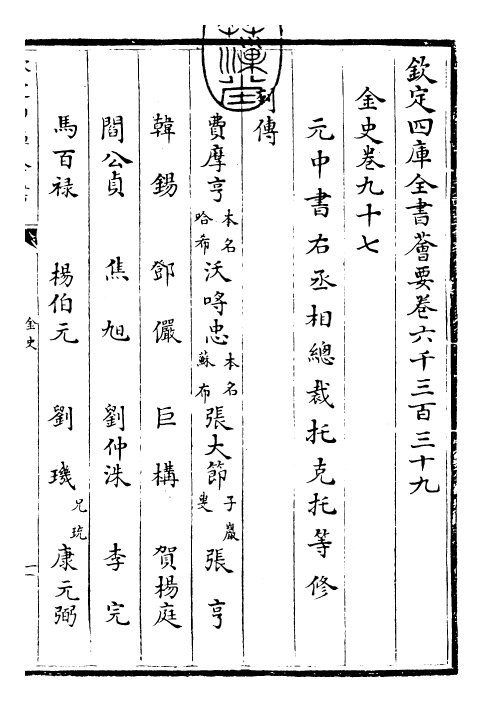 欽定四庫全書薈要卷六千三百三十九
金史卷九十七
元中書右丞相總裁托克托等修
列傳
費摩亨本名哈希 沃呼忠本名蘇布 張大節子巖叟 張亨
韓錫 鄧儼 巨構 賀楊庭
閻公貞 焦旭 劉仲洙 李完
馬百祿 楊伯元 劉璣兄珫 康元弼
金史
一